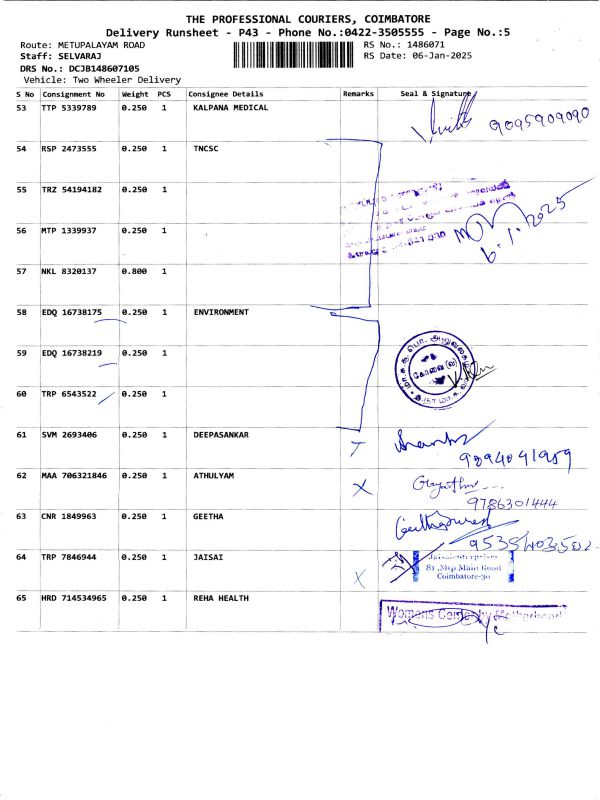 THE PROFESSIONAL COURIERS, COIMBATORE
Delivery Runsheet - P43 - Phone No.:0422-3505555 - Page No.:5
Route: METUPALAYAM ROAD RS No.: 1486071
Staff: SELVARAJ RS Date: 06-Jan-2025
DRS No.: DCJB148607105
Vehicle: Two Wheeler Delivery
S No Consignment No Weight PCS Consignee Details Remarks Seal & Signature
53 TTP 5339789 0.250 1 KALPANA MEDICAL
9095909090
54 RSP 2473555 0.250 1 TNCSC
55 TRZ 54194182 0.250 1
56 MTP 1339937 0.250 1
6.1.2025
57 NKL 8320137 0.800 1
58 EDQ 16738175 0.250 1 ENVIRONMENT
59 EDQ 16738219 0.250 1
கோவை
60 TRP 6543522 0.250 1
61 SVM 2693406 0.250 1 DEEPASANKAR
9894041989
62 MAA 706321846 0.250 1 ATHULYAM X
Gayathri
9786301444
63 CNR 1849963 0.250 1 GEETHA
64 TRP 7846944 0.250 1 JAISAI X
81, Mtp Main Road
Coimbatore-30
65 HRD 714534965 0.250 1 REHA HEALTH
Womens Center by Motherhood